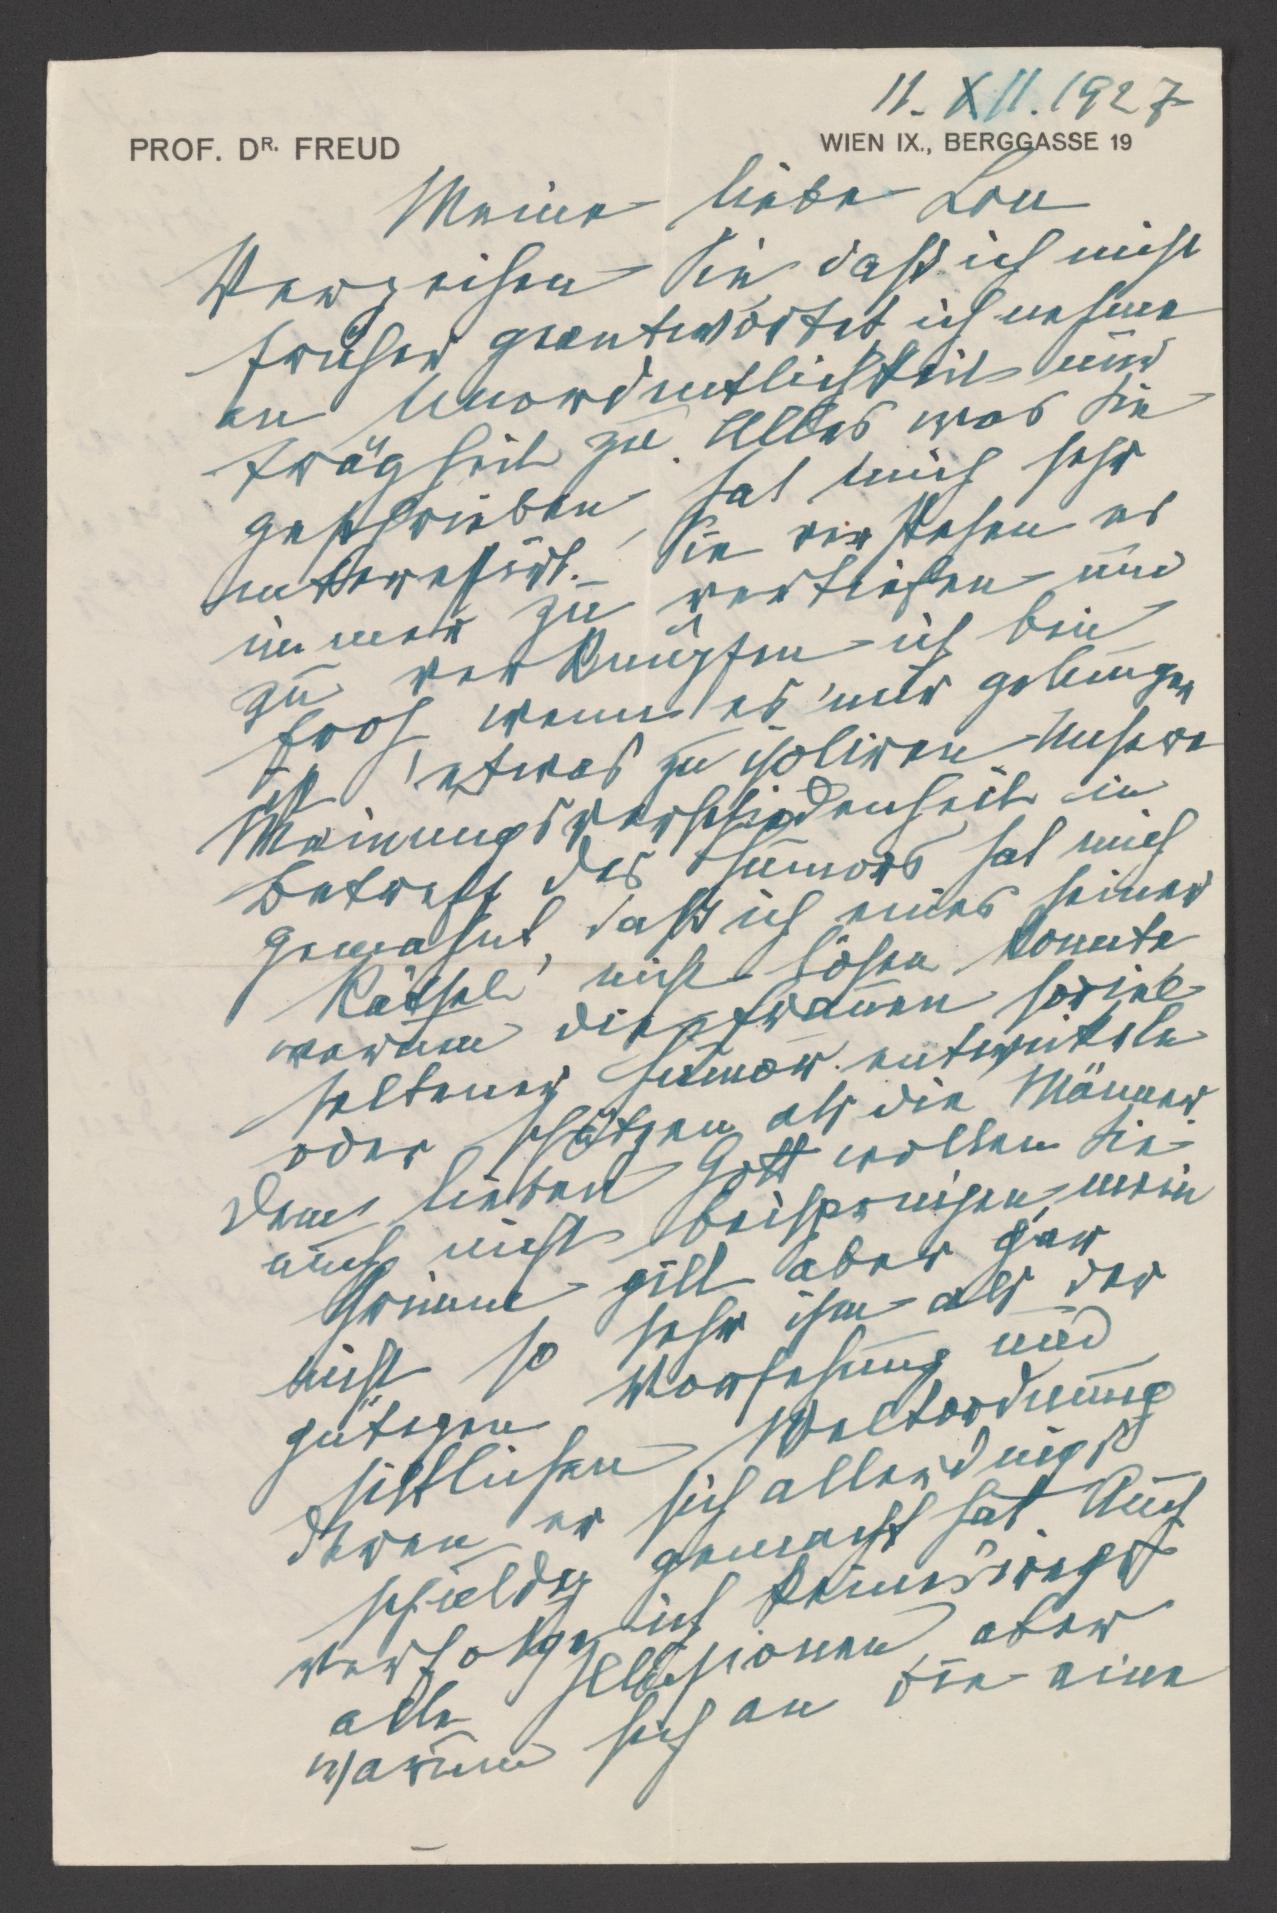 11. XII. 1927
PROF. DR. FREUD
WIEN IX., BERGGASSE 19
Meine liebe Lou
Verzeihen Sie daß ich nicht
früher geantwortet ich nehme
an Unordentlichkeit und
Trägheit zu. Alles was Sie
geschrieben, hat mich sehr
interessirt. Sie verstehen es
immer zu vertiefen und
zu verknüpfen ich bin
froh, wenn es mir gelungen
ist, etwas zu isoliren Unsere
Meinungsverschiedenheit in
Betreff des Humors hat mich
gemahnt, daß ich eines seiner
Rätsel nicht lösen konnte
warum die Frauen soviel
seltener Humor entwickeln
oder schätzen als die Männer
Dem lieben Gott wollen Sie
auch nicht beispringen, mein
Grimm gilt aber gar
nicht so sehr ihm als der
gütigen Vorsehung und
sittlichen Weltordnung
deren er sich allerdings
schuldig gemacht hat Auch
verfolge ich keineswegs
alle Illusionen aber
warum sich an die eine